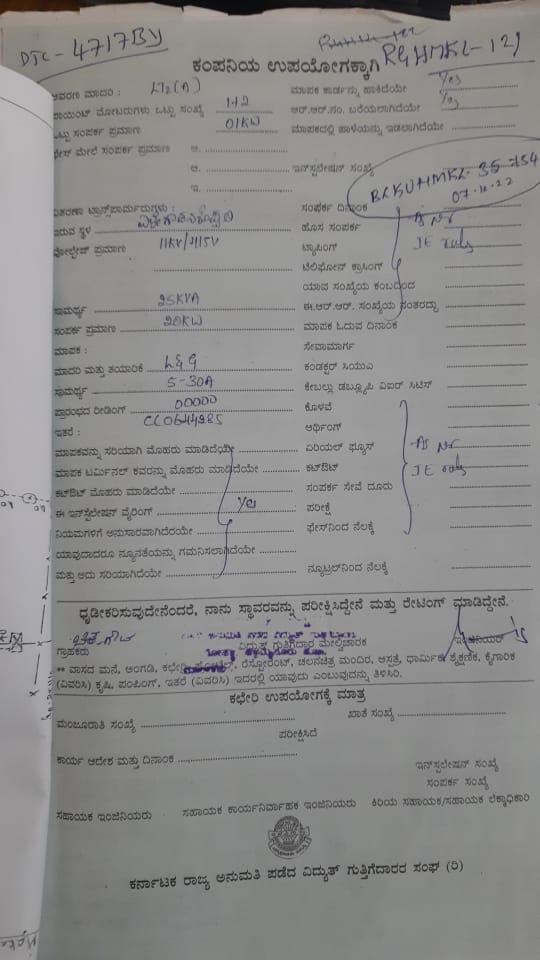 DTC - 4717BY
RGHMKL-129
ಕಂಪನಿಯ ಉಪಯೋಗಕ್ಕಾಗಿ
ಆವರಣ ಮಾದರಿ : LT2(A) ಮಾಪಕ ಕಾರ್ಡನ್ನು ಹಾಕಿದೆಯೇ Yes
ಪಾಯಿಂಟ್ ಮೋಟರುಗಳು ಒಟ್ಟು ಸಂಖ್ಯೆ 1+2 ಆರ್.ಆರ್.ನಂ. ಬರೆಯಲಾಗಿದೆಯೇ Yes
ಒಟ್ಟು ಸಂಪರ್ಕ ಪ್ರಮಾಣ 01KW ಮಾಪಕದಲ್ಲಿ ಹಾಳೆಯನ್ನು ಇಡಲಾಗಿದೆಯೇ
ಫೇಸ್ ಮೇಲೆ ಸಂಪರ್ಕ ಪ್ರಮಾಣ ಅ.
ಆ. ಇನ್‌ಸ್ಟಲೇಷನ್ ಸಂಖ್ಯೆ
ಇ.
07.11.22
ವಿತರಣಾ ಟ್ರಾನ್ಸ್‌ಫಾರ್ಮರುಗಳು : ಸಂಪರ್ಕ ದಿನಾಂಕ
ಇರುವ ಸ್ಥಳ ಹೊಸ ಸಂಪರ್ಕ
ವೋಲ್ಟೇಜ್ ಪ್ರಮಾಣ 11KV/415V ಟ್ಯಾಪಿಂಗ್
ಟೆಲಿಫೋನ್ ಕ್ರಾಸಿಂಗ್
ಯಾವ ಸಂಖ್ಯೆಯ ಕಂಬದಿಂದ
ಸಾಮರ್ಥ್ಯ 25KVA ಈ.ಆರ್.ಆರ್. ಸಂಖ್ಯೆಯ ನಂತರದ್ದು
ಸಂಪರ್ಕ ಪ್ರಮಾಣ 20KW ಮಾಪಕ ಓದುವ ದಿನಾಂಕ
ಮಾಪಕ : ಸೇವಾಮಾರ್ಗ
ಮಾದರಿ ಮತ್ತು ತಯಾರಿಕೆ L&G ಕಂಡಕ್ಟರ್ ಸಿಯುಎ
ಸಾಮರ್ಥ್ಯ 5-30A ಕೇಬಲ್ಲು ಡಬ್ಲ್ಯೂಪಿ ವಿಐಆರ್ ಸಿಟಿಸ್
ಪ್ರಾರಂಭದ ರೀಡಿಂಗ್ 00000 ಕೊಳವೆ
ಇತರೆ : ಅರ್ಥಿಂಗ್
ಮಾಪಕವನ್ನು ಸರಿಯಾಗಿ ಮೊಹರು ಮಾಡಿದೆಯೇ ಏರಿಯಲ್ ಫ್ಯೂಸ್
ಮಾಪಕ ಟರ್ಮಿನಲ್ ಕವರನ್ನು ಮೊಹರು ಮಾಡಿದೆಯೇ ಕಟ್‌ಔಟ್
ಕಟ್‌ಔಟ್ ಮೊಹರು ಮಾಡಿದೆಯೇ ಸಂಪರ್ಕ ಸೇವೆ ದೂರು
ಈ ಇನ್‌ಸ್ಟಲೇಷನ್ ವೈರಿಂಗ್ Yes ಪರೀಕ್ಷೆ
ನಿಯಮಗಳಿಗೆ ಅನುಸಾರವಾಗಿದೆಯೇ ಫೇಸ್‌ನಿಂದ ನೆಲಕ್ಕೆ
ಯಾವುದಾದರೂ ನ್ಯೂನತೆಯನ್ನು ಗಮನಿಸಲಾಗಿದೆಯೇ
ಮತ್ತು ಅದು ಸರಿಯಾಗಿದೆಯೇ ನ್ಯೂಟ್ರಲ್‌ನಿಂದ ನೆಲಕ್ಕೆ
ಧೃಡೀಕರಿಸುವುದೇನೆಂದರೆ, ನಾನು ಸ್ಥಾವರವನ್ನು ಪರೀಕ್ಷಿಸಿದ್ದೇನೆ ಮತ್ತು ರೇಟಿಂಗ್ ಮಾಡಿದ್ದೇನೆ.
ಗ್ರಾಹಕರು ವಿದ್ಯುತ್ ಗುತ್ತಿಗೆದಾರ ಮೇಲ್ವಿಚಾರಕ ಇಂಜಿನಿಯರ್
** ವಾಸದ ಮನೆ, ಅಂಗಡಿ, ಕಛೇರಿ, ಹೋಟೆಲ್, ರೆಸ್ಟೋರೆಂಟ್, ಚಲನಚಿತ್ರ ಮಂದಿರ, ಆಸ್ಪತ್ರೆ, ಧಾರ್ಮಿಕ, ಶೈಕ್ಷಣಿಕ, ಕೈಗಾರಿಕ
(ವಿವರಿಸಿ) ಕೃಷಿ, ಪಂಪಿಂಗ್, ಇತರೆ (ವಿವರಿಸಿ) ಇದರಲ್ಲಿ ಯಾವುದು ಎಂಬುವುದನ್ನು ತಿಳಿಸಿರಿ.
ಕಛೇರಿ ಉಪಯೋಗಕ್ಕೆ ಮಾತ್ರ
ಮಂಜೂರಾತಿ ಸಂಖ್ಯೆ ಖಾತೆ ಸಂಖ್ಯೆ
ಪರೀಕ್ಷಿಸಿದೆ
ಕಾರ್ಯ ಆದೇಶ ಮತ್ತು ದಿನಾಂಕ
ಇನ್‌ಸ್ಟಲೇಷನ್ ಸಂಖ್ಯೆ
ಸಂಪರ್ಕ ಸಂಖ್ಯೆ
ಸಹಾಯಕ ಇಂಜಿನಿಯರು ಸಹಾಯಕ ಕಾರ್ಯನಿರ್ವಾಹಕ ಇಂಜಿನಿಯರು ಕಿರಿಯ ಸಹಾಯಕ/ಸಹಾಯಕ ಲೆಕ್ಕಾಧಿಕಾರಿ
ಕರ್ನಾಟಕ ರಾಜ್ಯ ಅನುಮತಿ ಪಡೆದ ವಿದ್ಯುತ್ ಗುತ್ತಿಗೆದಾರರ ಸಂಘ (ರಿ)